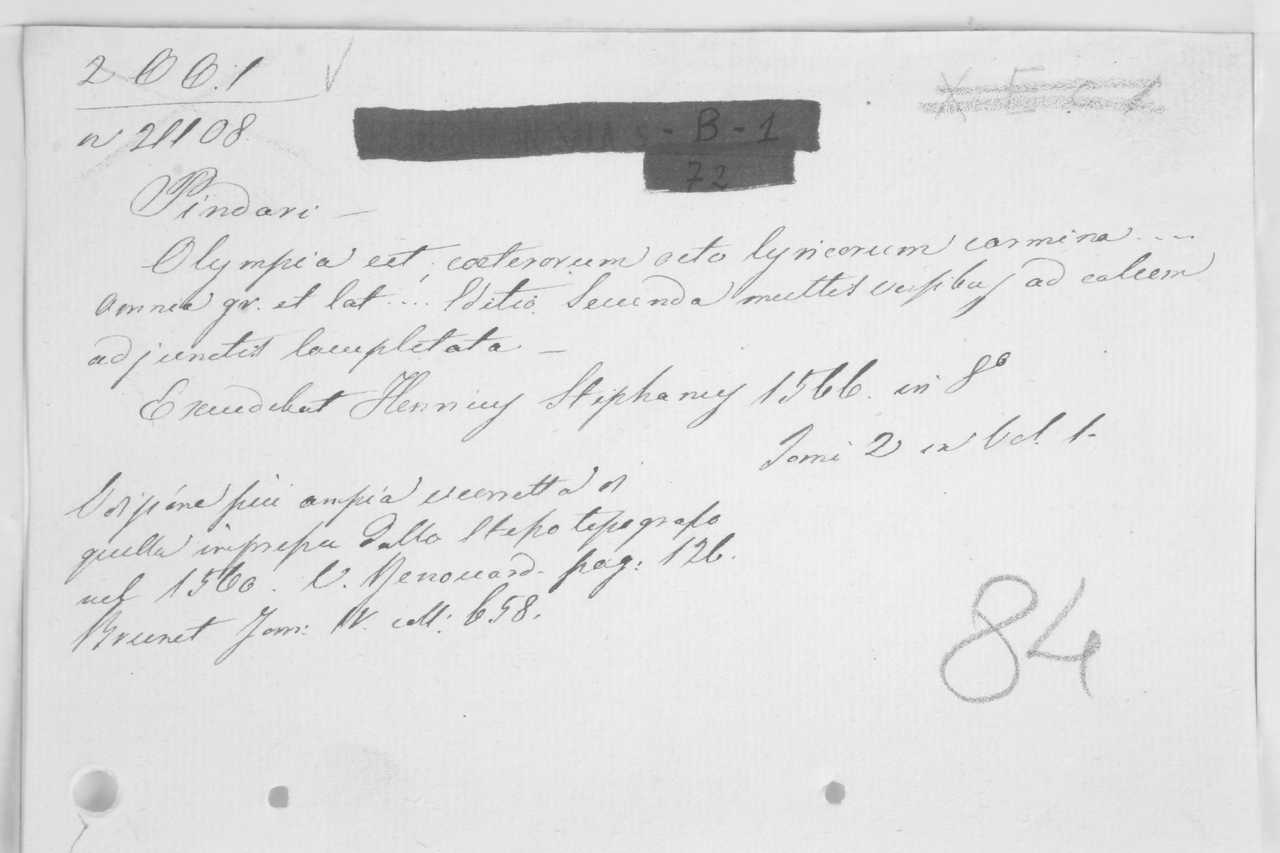 2 OO.1
n 21108
- B - 1
72
Pindari —
Olympia et; cœterorum octo lyricorum carmina ....
omnia gr. et lat .... Editio Secunda multis versibus ad calcem
adjunctis locupletata —
Excudebat Henricus Stephanus 1566. in 8º
Tomi 2 in Vol. 1.
Edizione più ampia e corretta di
quella impressa dallo stesso tipografo
nel 1560. V. Renouard. pag: 126.
Brunet Tom: IV. coll: 658.
84